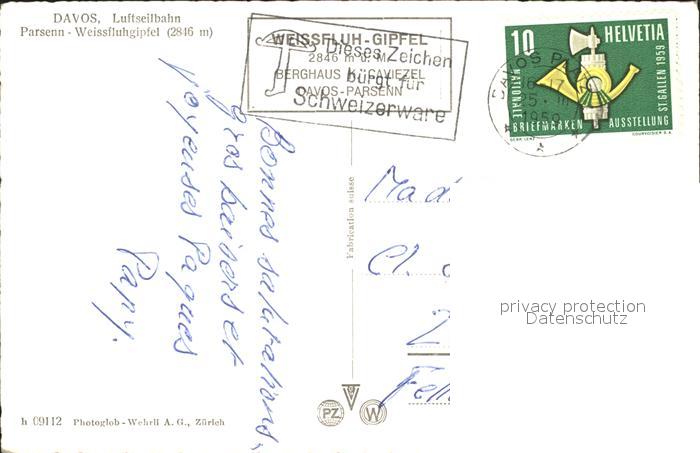 DAVOS, Luftseilbahn
Parsenn - Weissfluhgipfel (2846 m)
WEISSFLUH-GIPFEL
2846 m ü. M.
BERGHAUS K. CAVIEZEL
DAVOS-PARSENN
Dieses Zeichen
bürgt für
Schweizerware
10 HELVETIA
NATIONALE
BRIEFMARKEN AUSSTELLUNG
ST. GALLEN 1959
COURVOISIER S.A.
DAVOS
1959
Bonnes salutations,
gros baisers et
joyeuses Paques
Papy.
Fabrication suisse
Mad
Cl.
privacy protection
Datenschutz
PZ W
h 09112 Photoglob - Wehrli A. G., Zürich